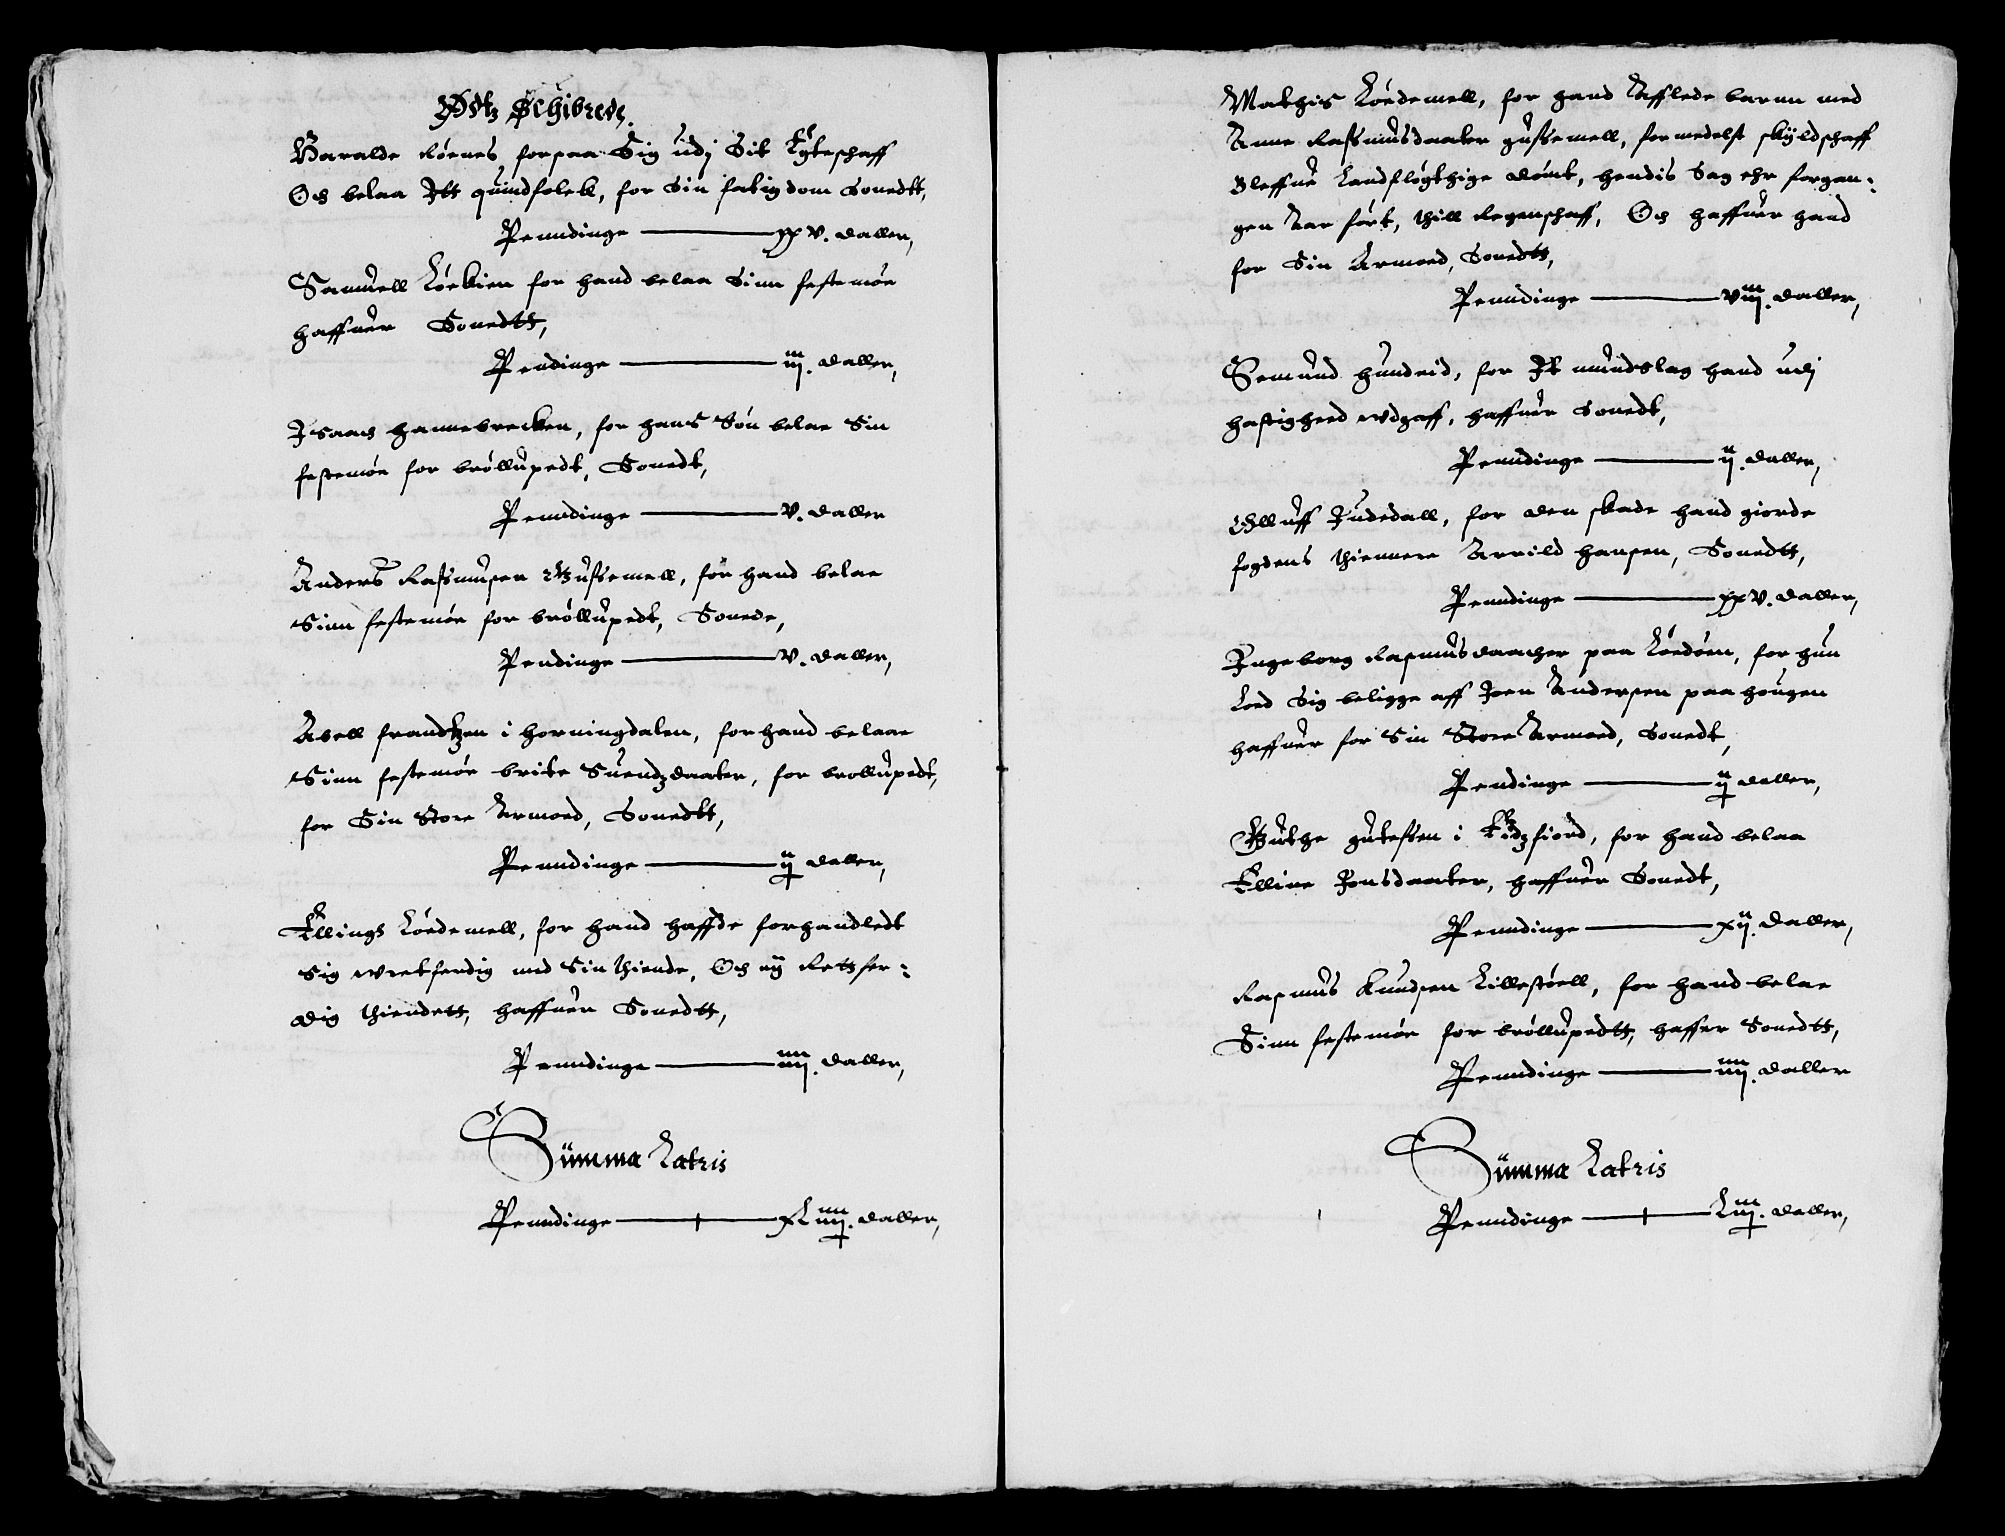 Ørstz Schibrede,
Haralde Rørnes, forpaa Sig udj Sit Ecteschaff
Och belaa Itt quindfolck, for Sin fatigdom Sonedtt,
Penndinge ——— xxv. daller,
Samuell Løckien for hand belaa Sinn festemøe
haffuer Sonedtt,
Pendinge ——— iij. daller,
Isaach hannebrecken, for hans Søn belae Sin
festemøe for brøllupedt, Sonedt,
Penndinge ——— v. daller
Anders Rassmusen Gussemell, for hand belae
Sinn festemøe for brøllupedt, Sonede,
Pendinge ——— v. daller,
Abell frandtzen i horningdalen, for hand belaae
Sinn festemøe brite Suendzdaater, for brollupedt,
for Sin Store Armoed, Sonedtt,
Penndinge ——— ij daller,
Ellings Løedemell, for hand haffde forhandledt
Sig wretferdig med Sin thiende, Och ej Rettfer-
dig thiendett, haffuer Sonedtt,
Penndinge ——— iiij. daller,
Summa Latris
Penndinge ——— xLiiij. daller,
Mathis Løedemell, for hand Afflede barnn med
Anne Rassmusdaater gussemell, formedelst skyldschaff
Bleffue Landfløgthige dømt, hendis Sag ehr forgan-
gen Aar ført, thill Regenschaff, Och haffuer hand
for Sin Armoed, Sonedtt,
Penndinge ——— viij. daller,
Semund hundeid, for It mundslag hand udj
hastigheed wdgaff, haffuer Sonedt,
Penndinge ——— ij. daller,
Olluff Rudedall, for den skade hand giorde
fogdens thiennere Arrild hansen, Sonedtt,
Penndinge ——— xxv. daller,
Ingeborg Rasmusdaather paa Løedøen, for hun
Loed Sig beligge aff Joen Andersen paa hougen
haffuer for Sin Store Armoed, Sonedt,
Pendinge ——— ij daller,
Guthe gutessen i Eidzfiord, for hand belaa
Elline Jonsdaater, haffuer Sonedt,
Penndinge ——— xij. daller,
Rasmus Knudsen Lillestøell, for hand belae
Sinn festemøe for brøllupedtt, haffer Sonedtt,
Penndinge ——— iiij. daller
Summa Latris
Penndinge ——— Liij. daller,